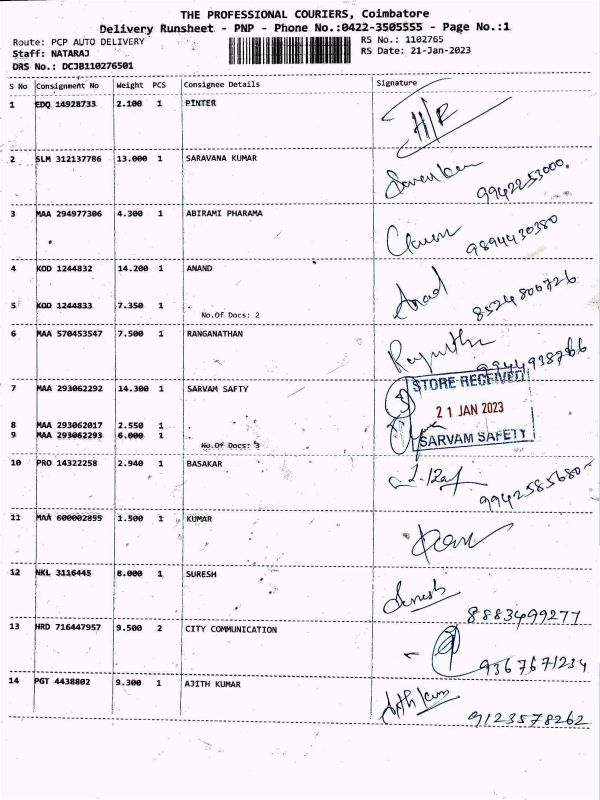 THE PROFESSIONAL COURIERS, Coimbatore
Delivery Runsheet - PNP - Phone No.:0422-3505555 - Page No.:1
Route: PCP AUTO DELIVERY RS No.: 1102765
Staff: NATARAJ RS Date: 21-Jan-2023
DRS No.: DCJB110276501
S No Consignment No Weight PCS Consignee Details Signature
1 EDQ 14928733 2.100 1 PINTER H/R
2 SLM 312137786 13.000 1 SARAVANA KUMAR
9942253000
3 MAA 294977306 4.300 1 ABIRAMI PHARAMA
9894430380
4 KOD 1244832 14.200 1 ANAND Anad
8524800726
5 KOD 1244833 7.350 1
No.Of Docs: 2
6 MAA 570453547 7.500 1 RANGANATHAN
9944938766
7 MAA 293062292 14.300 1 SARVAM SAFTY
STORE RECEIVED
21 JAN 2023
SARVAM SAFETY
8 MAA 293062017 2.550 1
9 MAA 293062293 6.000 1
No.Of Docs: 3
10 PRO 14322258 2.940 1 BASAKAR
9942585680
11 MAA 600002855 1.500 1 KUMAR
12 NKL 3116445 8.000 1 SURESH
8883499277
13 HRD 716447957 9.500 2 CITY COMMUNICATION
9367671234
14 PGT 4438802 9.300 1 AJITH KUMAR
9123578262